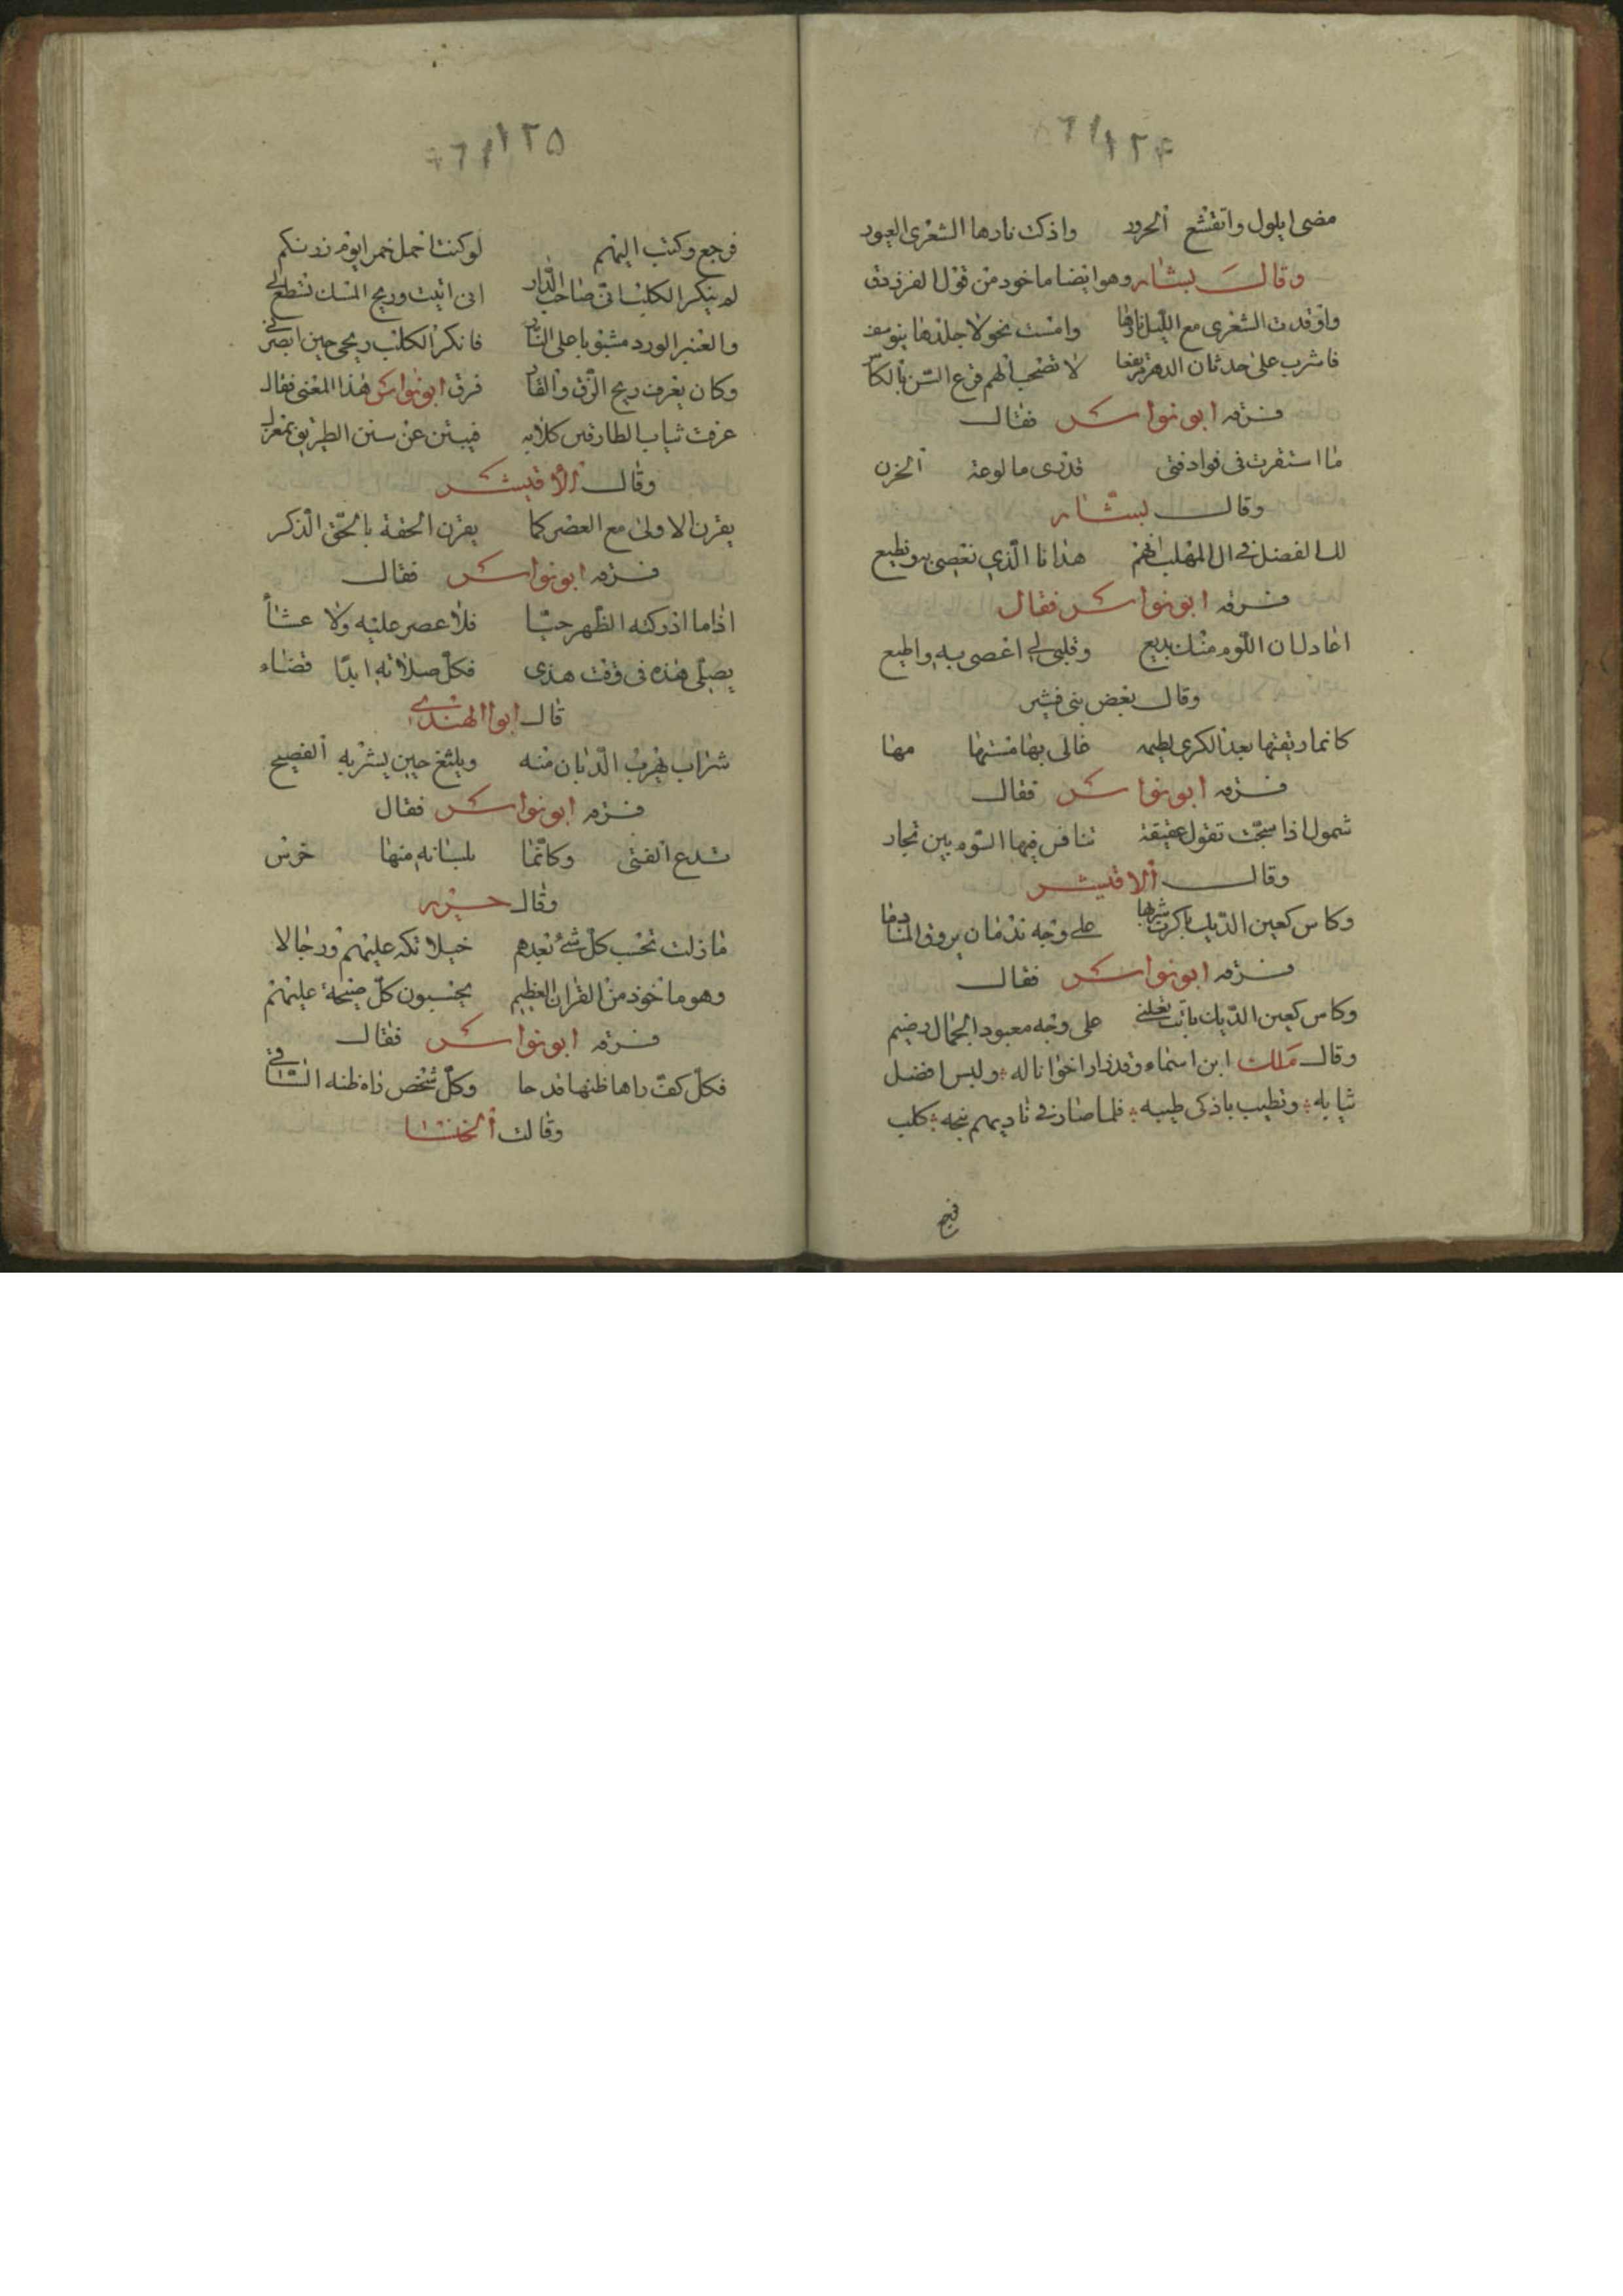 ١٢٤
مضى ايلول وانقشع الحرور واذكت نارها الشعرى العبور
وقال بشار وهو ايضا ماخوذ من قول الفرزدق
واوقدت الشعرى مع الليل نارها وامست نحولا جلدها يتوسف
فاشرب على حدثان الدهر مرتفعا لا تصحب الهم قرع السن بالكاس
فسرقه ابو نواس فقال
ما استقرت فى فواد فتى فدرى ما لوعة الحزن
وقال بشار
لك الفضل فى ال المهلب انهم هذانا الذي نعصى به ونطيع
فسرقه ابو نواس فقال
اعاذل ان اللوم منك بديع وقلبى لى اعصى به واطيع
وقال بعض بنى قشير
كانما ريقتها بعد الكرى لطيمه غالى بها منتها مها
فسرقه ابو نواس فقال
شمول اذا شجت تقول عقيقة تنافس فيها السوم بين تجار
وقال الاقيشر
وكاس كعين الديك باكرت شربها على وجه ندمان يروق المنادما
فسرقه ابو نواس فقال
وكاس كعين الديك باتت تعلنى على وجه معبود الجمال رخيم
وقال ملك ابن اسماء وقد زار اخوانا له وليس افضل
ثيابه وتطيب باذكى طيبه فلما صار فى ناديهم نبحه كلب
فرجع
١٢٥
فرجع وكتب اليهم لو كنت احمل خمر ايوم زرتكم
لم ينكر الكلب انى صاحب الدار انى اتيت وريح المسك تسطع لى
والعنبر الورد مشبوبا على النار فانكر الكلب ريحى حين ابصرنى
وكان يعرف ريح الزق والقار فرق ابو نواس هذا المعنى فقال
عرفت ثياب الطارقين كلابه فيبتن عن سنن الطريق بمعزل
وقال الاقيشر
يقرن الاولى مع العصر كما يقرن الحقة بالحق الذكر
فسرقه ابو نواس فقال
اذا ما ادركته الظهر حيا فلا عصر عليه ولا عشاأ
يصلى هذه فى وقت هذى فكل صلاته ابدا قضاء
قال ابو الهندى
شراب يهرب الذبان منه ويلثغ حين يشربه الفصيح
فسرقه ابو نواس فقال
تدع الفتى وكانما بلسانه منها خرس
وقال جرير
ما زلت تحسب كل شئ بعدهم خيلا تكر عليهم ورجالا
وهو ماخوذ من القران العظيم يحسبون كل صيحة عليهم
فسرقه ابو نواس فقال
فكل كف راها ظنها قدحا وكل شخص راه ظنه الساقى
وقالت الخنسا